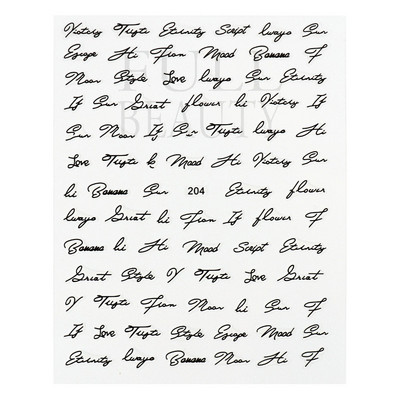 Victory Tiyte Eternity Script lways Sun
Egiope Hi Fion Mood Banana F
Moon Style Love lways Sun Eternity
If Sun Great flower hi Victory If
Sun Moon If Sun Tiyte lways Hi
Love Tiyte & Mood Hi Victory Sun
hi Banana Sun 204 Eternity flower
lways Great hi Fion If flower F
Banana hi Hi Mood Script Eternity
Great Style Y Tiyte Love Great
Y Tiyte Fion Moon hi Sun F
If Love Tiyte Style Egiope Mood Sun
Eternity lways Banana Moon Hi F
FULL
BEAUTY